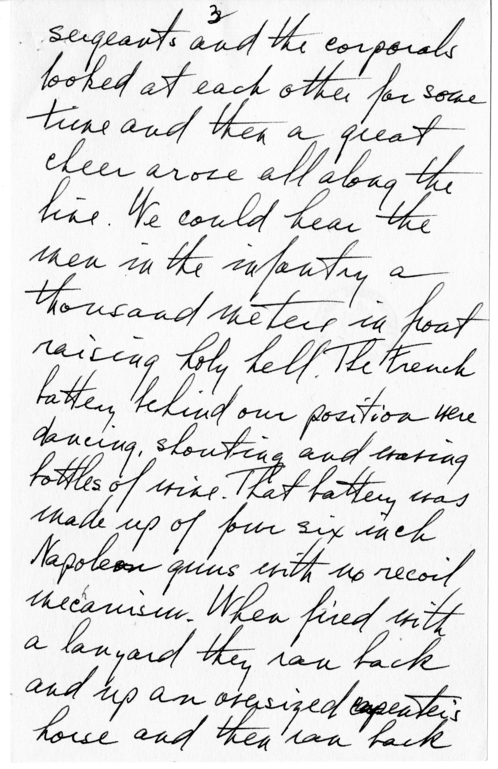 3
sergeants and the corporals
looked at each other for some
time and then a great
cheer arose all along the
line. We could hear the
men in the infantry a
thousand meters in front
raising holy hell. The French
battery behind our position were
dancing, shouting and waving
bottles of wine. That battery was
made up of four six inch
Napoleon guns with no recoil
mecanism. When fired with
a lanyard they ran back
and up an oversized carpenter's
horse and then ran back